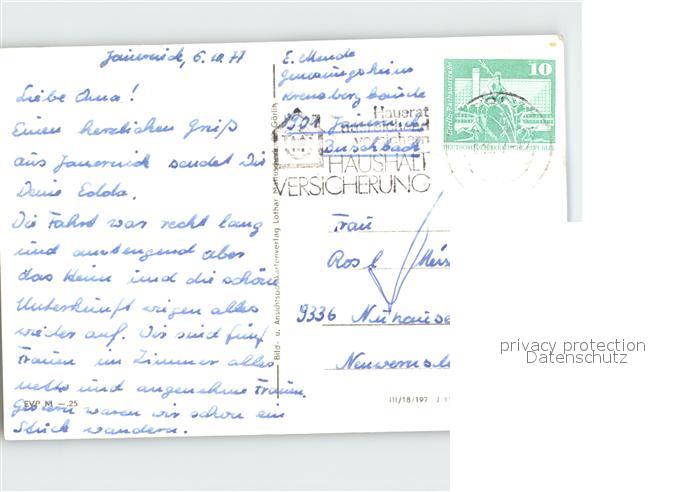 Jauernick, 6.10.77
Liebe Oma!
Einen herzlichen Gruß
aus Jauernick sendet Dir
Deine Edda.
Die Fahrt war recht lang
und anstrengend aber
das Heim und die schöne
Unterkunft wiegen alles
wieder auf. Wir sind fünf
Frauen im Zimmer alles
nette und angenehme Frauen.
Gestern waren wir schon ein
Stück wandern.
EVP M -.25
Bild- u. Ansichtskartenverlag Lothar Görlitz
E. Mende
Genesungsheim
Kreuzbergbaude
8901 Jauernick
Buschbach
Hausrat
ausreichend
versichern
HAUSHALT
VERSICHERUNG
10
Berlin, Rathausstraße
Frau
Rosl
9336 Neuhausen
III/18/197 J
privacy protection
Datenschutz